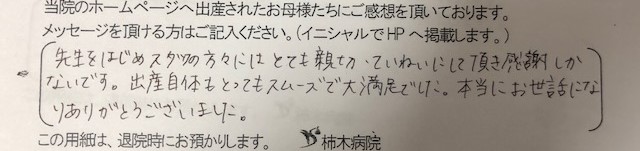 当院のホームページへ出産されたお母様たちにご感想を頂いております。
メッセージを頂ける方はご記入ください。(イニシャルでHPへ掲載します。)
先生をはじめスタッフの方々にはとても親切、ていねいにして頂き感謝しか
ないです。出産自体もとってもスムーズで大満足でした。本当にお世話にな
りありがとうございました。
この用紙は、退院時にお預かりします。 柿木病院